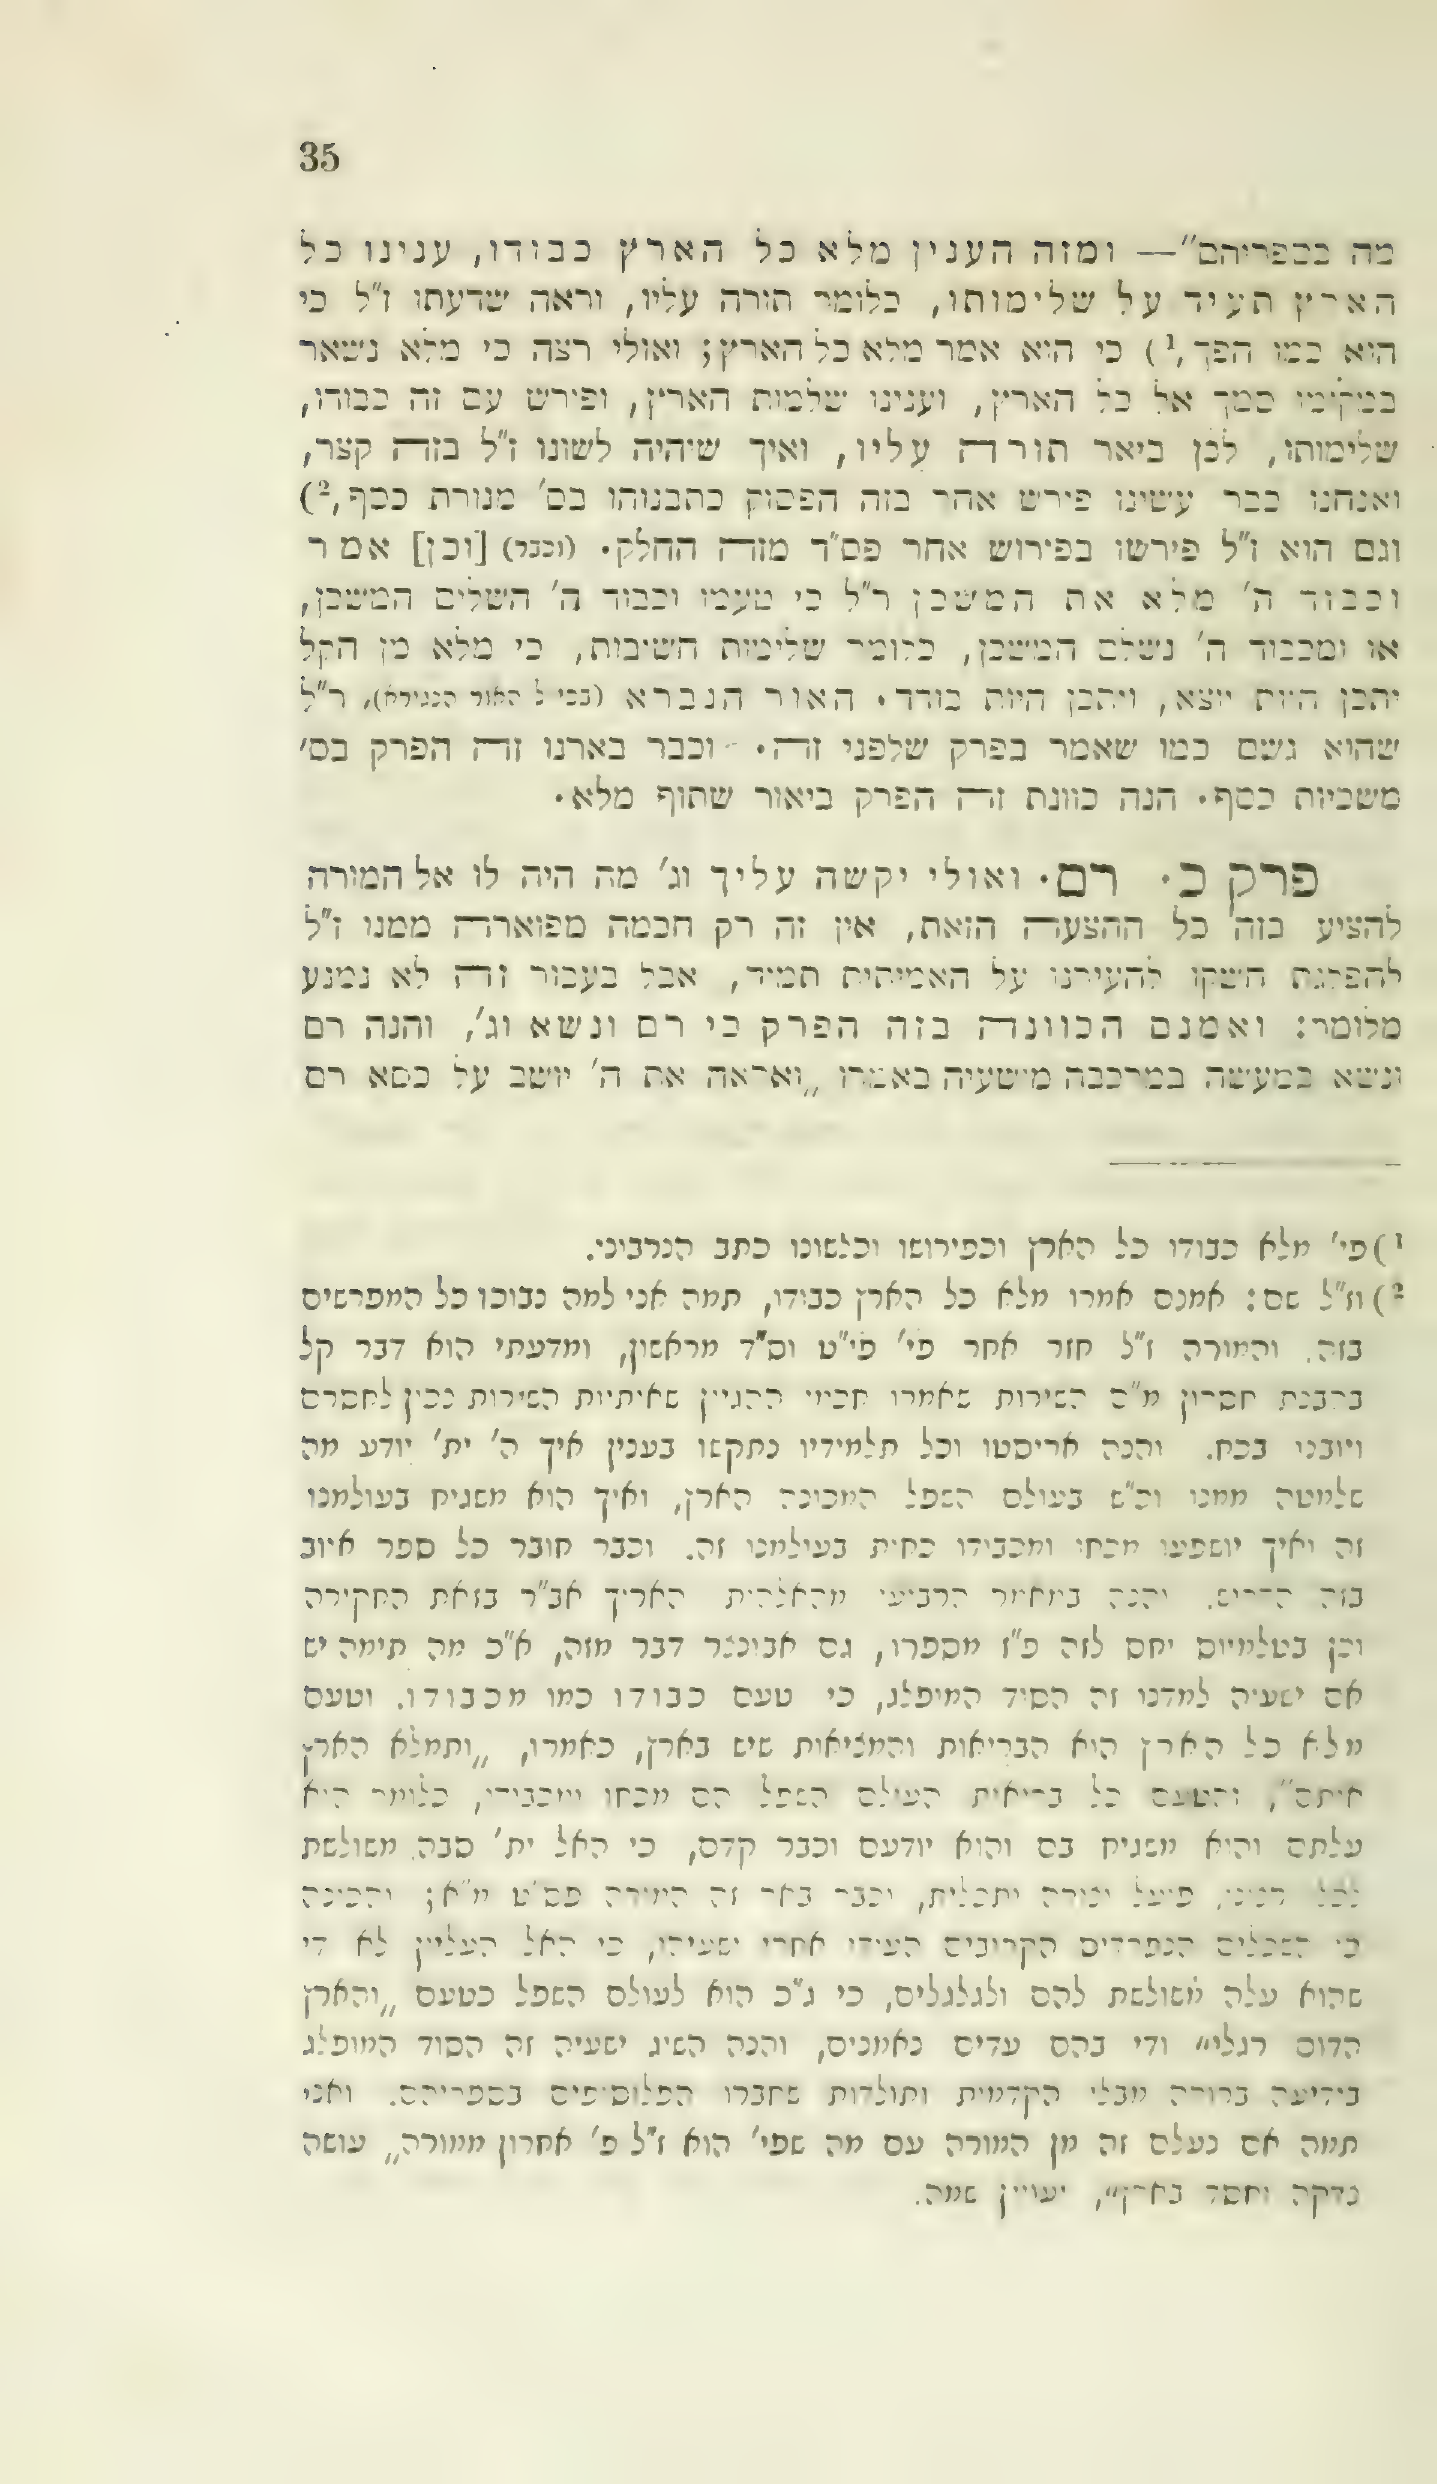 35
מה בספריהם"— ומזה הענין מלא כל הארץ כבודו, ענינו כל
הארץ תעיד על שלימותו, כלומר תורה עליו, וראה שדעתו ז"ל כי
הוא כמו הפך,¹) כי הוא אמר מלא כל הארץ; ואולי רצה כי מלא נשאר
במקומו סמך אל כל הארץ, וענינו שלמות הארץ, ופירש עם זה כבודו,
שלימותו, לכן ביאר תורה עליו, ואיך שיהיה לשונו ז"ל בזה קצר,
ואנחנו כבר עשינו פירש אחר בזה הפסוק כתבנוהו בס' מנורת כסף,²)
וגם הוא ז"ל פירשו בפירוש אחר פס"ד מזה החלק. (וכבר) [וכן] אמר
וכבוד ה' מלא את המשכן ר"ל כי טעמו וכבוד ה' השלים המשכן,
או ומכבוד ה' נשלם המשכן, כלומר שלימות חשיבות, כי מלא מן הקל
יתכן היות יוצא, ויתכן היות בודד. האור הנברא (בכ"י ל האור הבגירא), ר"ל
שהוא גשם כמו שאמר בפרק שלפני זה. וכבר בארנו זה הפרק בס'
משכיות כסף. הנה כוונת זה הפרק ביאור שתוף מלא.
פרק כ. רם. ואולי יקשה עליך וג' מה היה לו אל המורה
להציע בזה כל ההצעה הזאת, אין זה רק חכמה מפוארה ממנו ז"ל
להפלגת חשקו להעירנו על האמיתית תמיד, אבל בעבור זה לא נמנע
מלומר: ואמנם הכוונה בזה הפרק כי רם ונשא וג', והנה רם
ונשא במעשה במרכבה מישעיה באמרו „ואראה את ה' יושב על כסא רם
¹) פי' מלא כבודו כל הארץ וכפירושו וכלשונו כתב הנרבוני.
²) וז"ל שם: אמנם אמרו מלא כל הארץ כבודו, תמה אני למה נבוכו כל המפרשים
בזה. והמורה ז"ל חזר אחר פי' פי"ט וס"ד מראשון, ומדעתי הוא דבר קל
בהבנת חסרון מ"ם השירות שאמרו חכמי ההגיון שאותיות השירות נכון לחסרם
ויובנו בכח. והנה אריסטו וכל תלמידיו נתקשו בענין איך ה' ית' יודע מה
שלמטה ממנו וכ"ש בעולם השפל המכונה הארץ, ואיך הוא משגיח בעולמנו
זה ואיך יושפעו מכחו ומכבודו כחות בעולמנו זה. וכבר חובר כל ספר איוב
בזה הדרוש. והנה במאמר הרביעי מהאלהות האריך אב"ר בזאת החקירה
וכן בטלמיוס יחס לזה פ"ז מספרו, גם אבונצר דבר מזה, א"כ מה תימה יש
אם ישעיה למדנו זה הסוד המופלג, כי טעם כבודו כמו מכבודו. וטעם
מלא כל הארץ הוא הבריאות והמציאות שיש בארץ, כאמרו, „ותמלא הארץ
אותם", והטעם כל בריאות העולם השפל הם מכחו ומכבודו, כלומר הוא
עלתם והוא משגיח בם והוא יודעם וכבר קדם, כי האל ית' סבה משולשת
לכל דבר, פועל וצורה ותכלית, וכבר באר זה המורה פס"ט מ"א; והכונה
כי השכלים הנפרדים הקרובים העידו אחרי ישעיהו, כי האל העליון לא די
שהוא עלה משולשת להם ולגלגלים, כי ג"כ הוא לעולם השפל כטעם „והארץ
הדום רגלי" ודי בהם עדים נאמנים, והנה השיג ישעיה זה הסוד המופלג
בידיעה ברורה מבלי הקדמות ותולדות שחברו הפלוסופים בספריהם. ואני
תמה אם נעלם זה מן המורה עם מה שפי' הוא ז"ל פ' אחרון ממורה „עושה
צדקה וחסד בארץ", יעויין שמה.